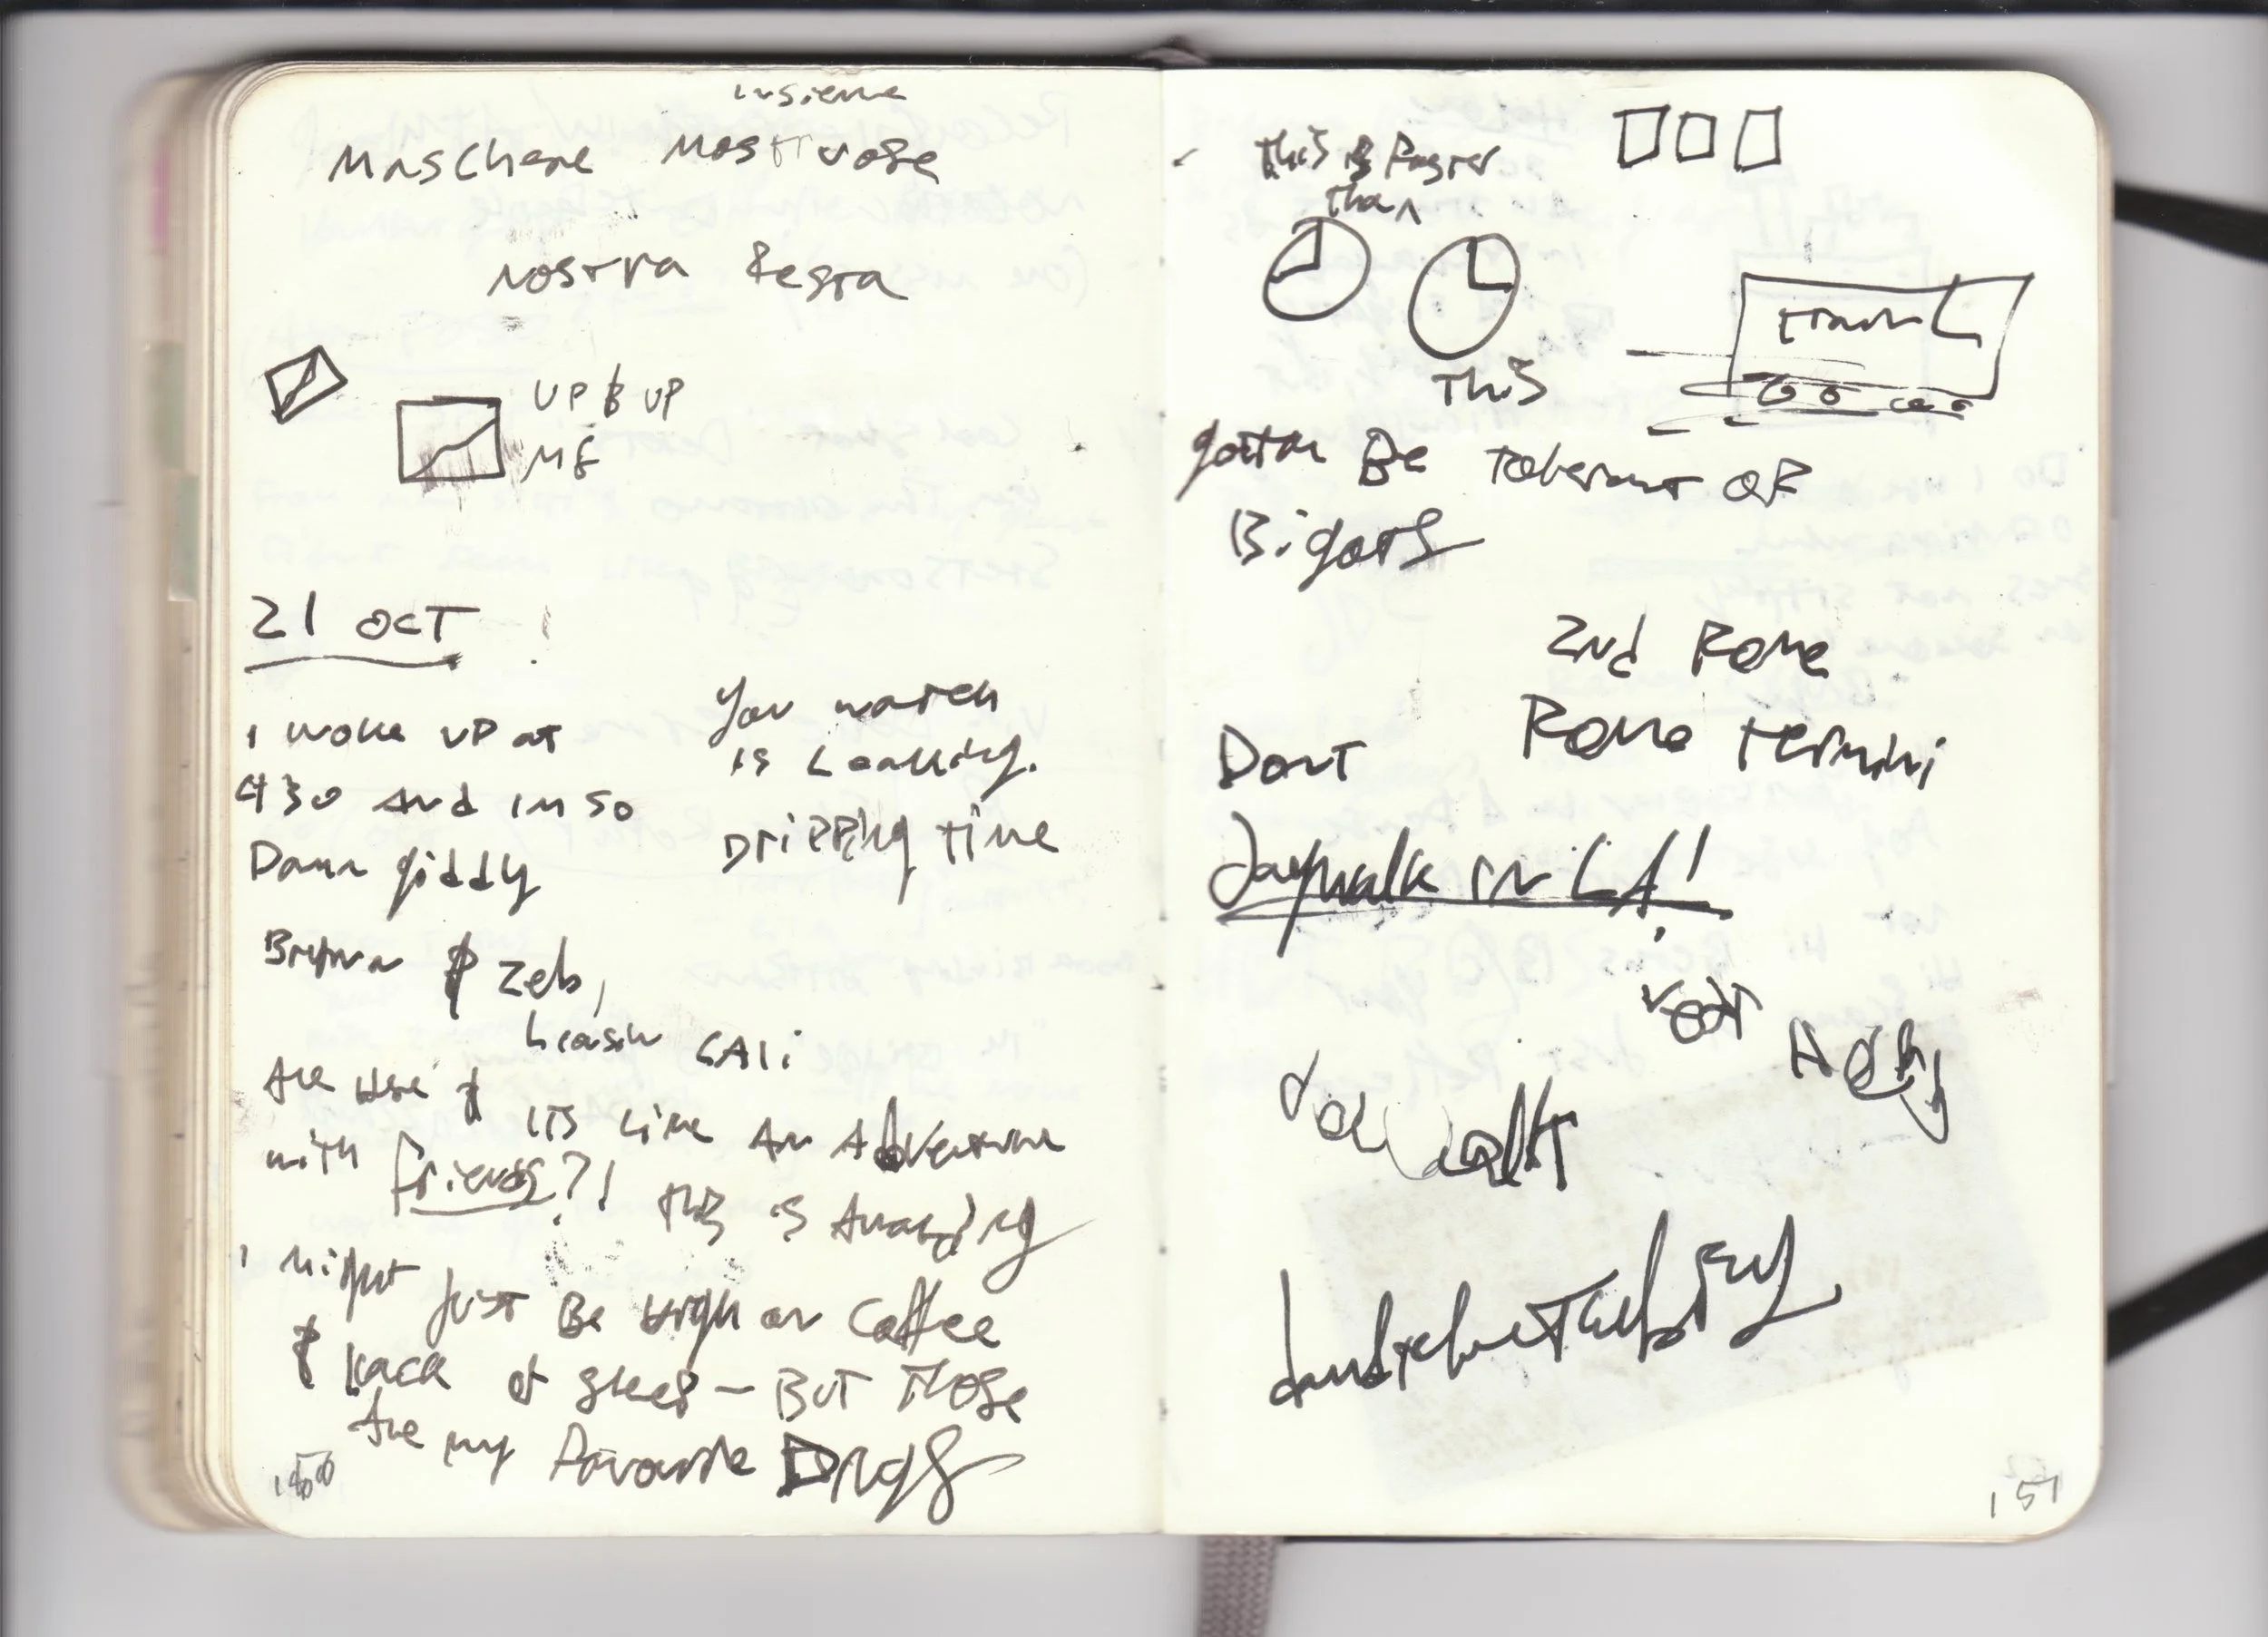 insieme
Maschere Mostruose
nostra festa
UP & UP
21 OCT
I woke up at
430 and im so
Damn giddy
You watch
is Leaking.
Dripping time
& Zeb,
CALi
Are here &
its like an Adventure
with friends?!
this is Amazing
I might just Be High on Coffee
& Lack of sleep – But those
Are my favourite Drugs
150
this is faster
than
this
travel
gotta Be tolerant of
Bigots
2nd Rome
Rome termini
Dont
Jaywalk in LA!
151